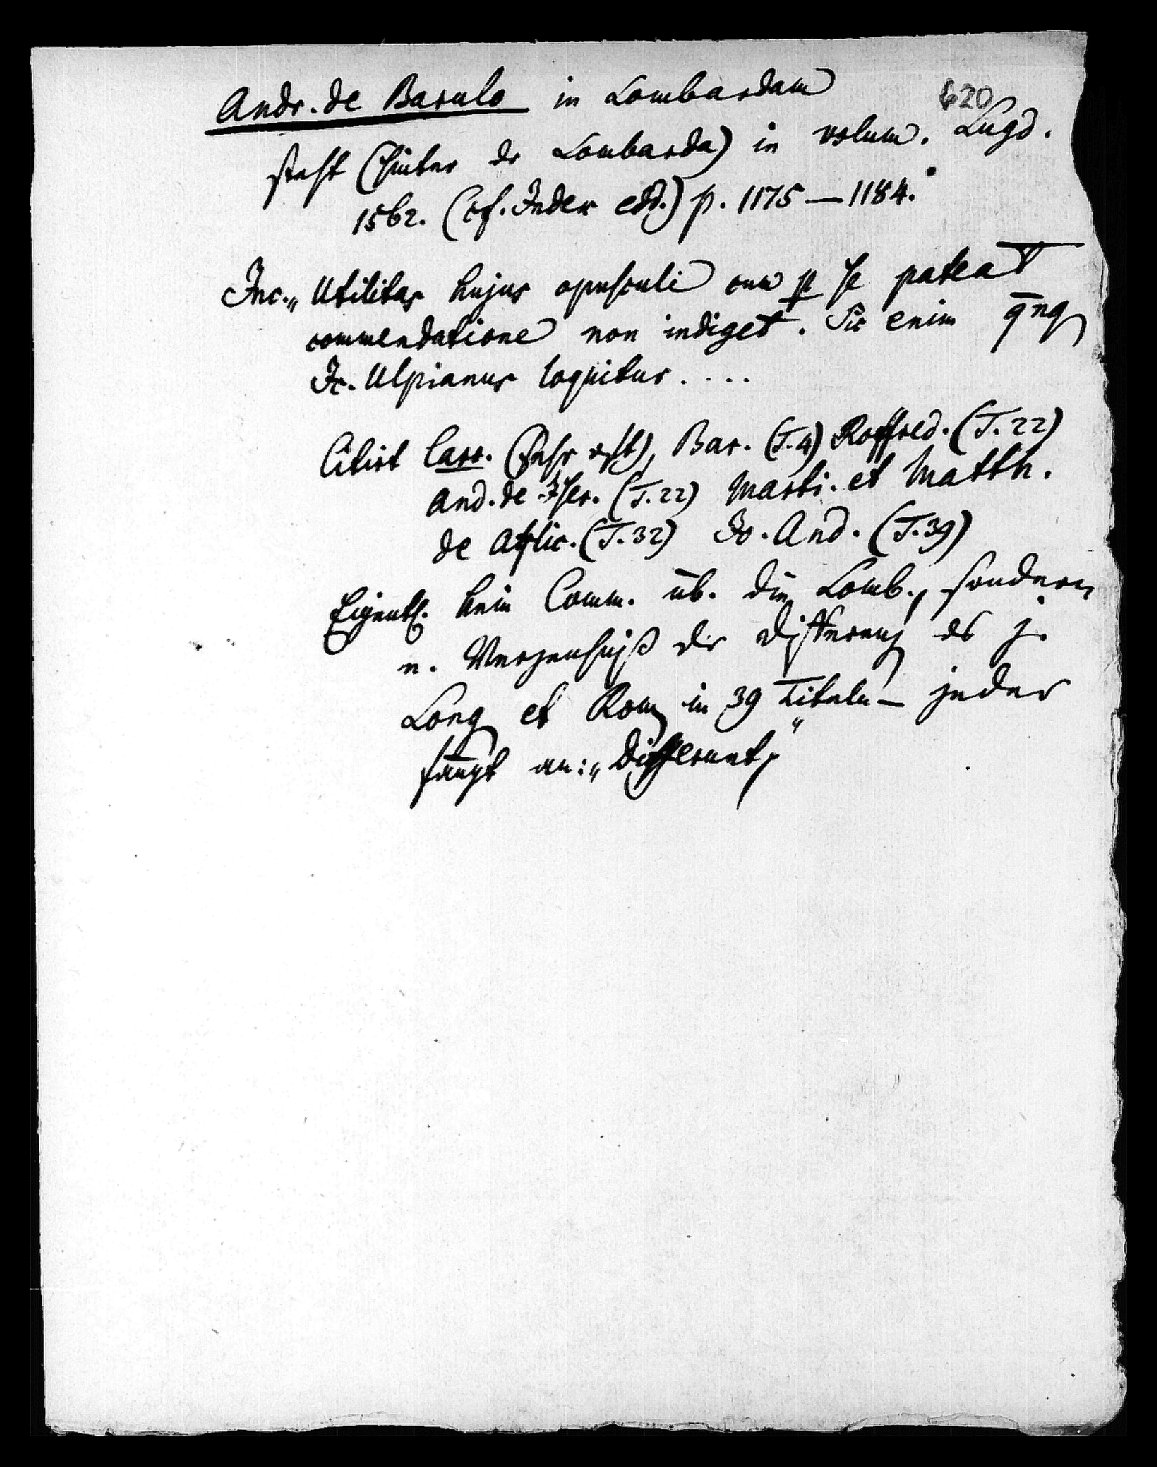 620
Andr. de Barulo in Lombardam
steht (hinter der Lombarda) in volum. Lugd.
1562. (cf. Index edd.) p. 1175 — 1184.
Inc. „Utilitas hujus opusculi cum p se pateat
commendatione non indiget. Sic enim
Jc. Ulpianus loquitur . . . .
Citirt Car. (sehr oft), Bar. (T. 4) Roffred. (T. 22)
And. de Iser. (T. 22) Marti. et Matth.
de Afflic. (T. 32) Jo. And. (T. 39)
Eigentl. kein Comm. üb. die Lomb., sondern
e. Verzeichniß der Differenz des j.
Long et Rom in 39 Titeln — jeder
fängt an: „Differunt"